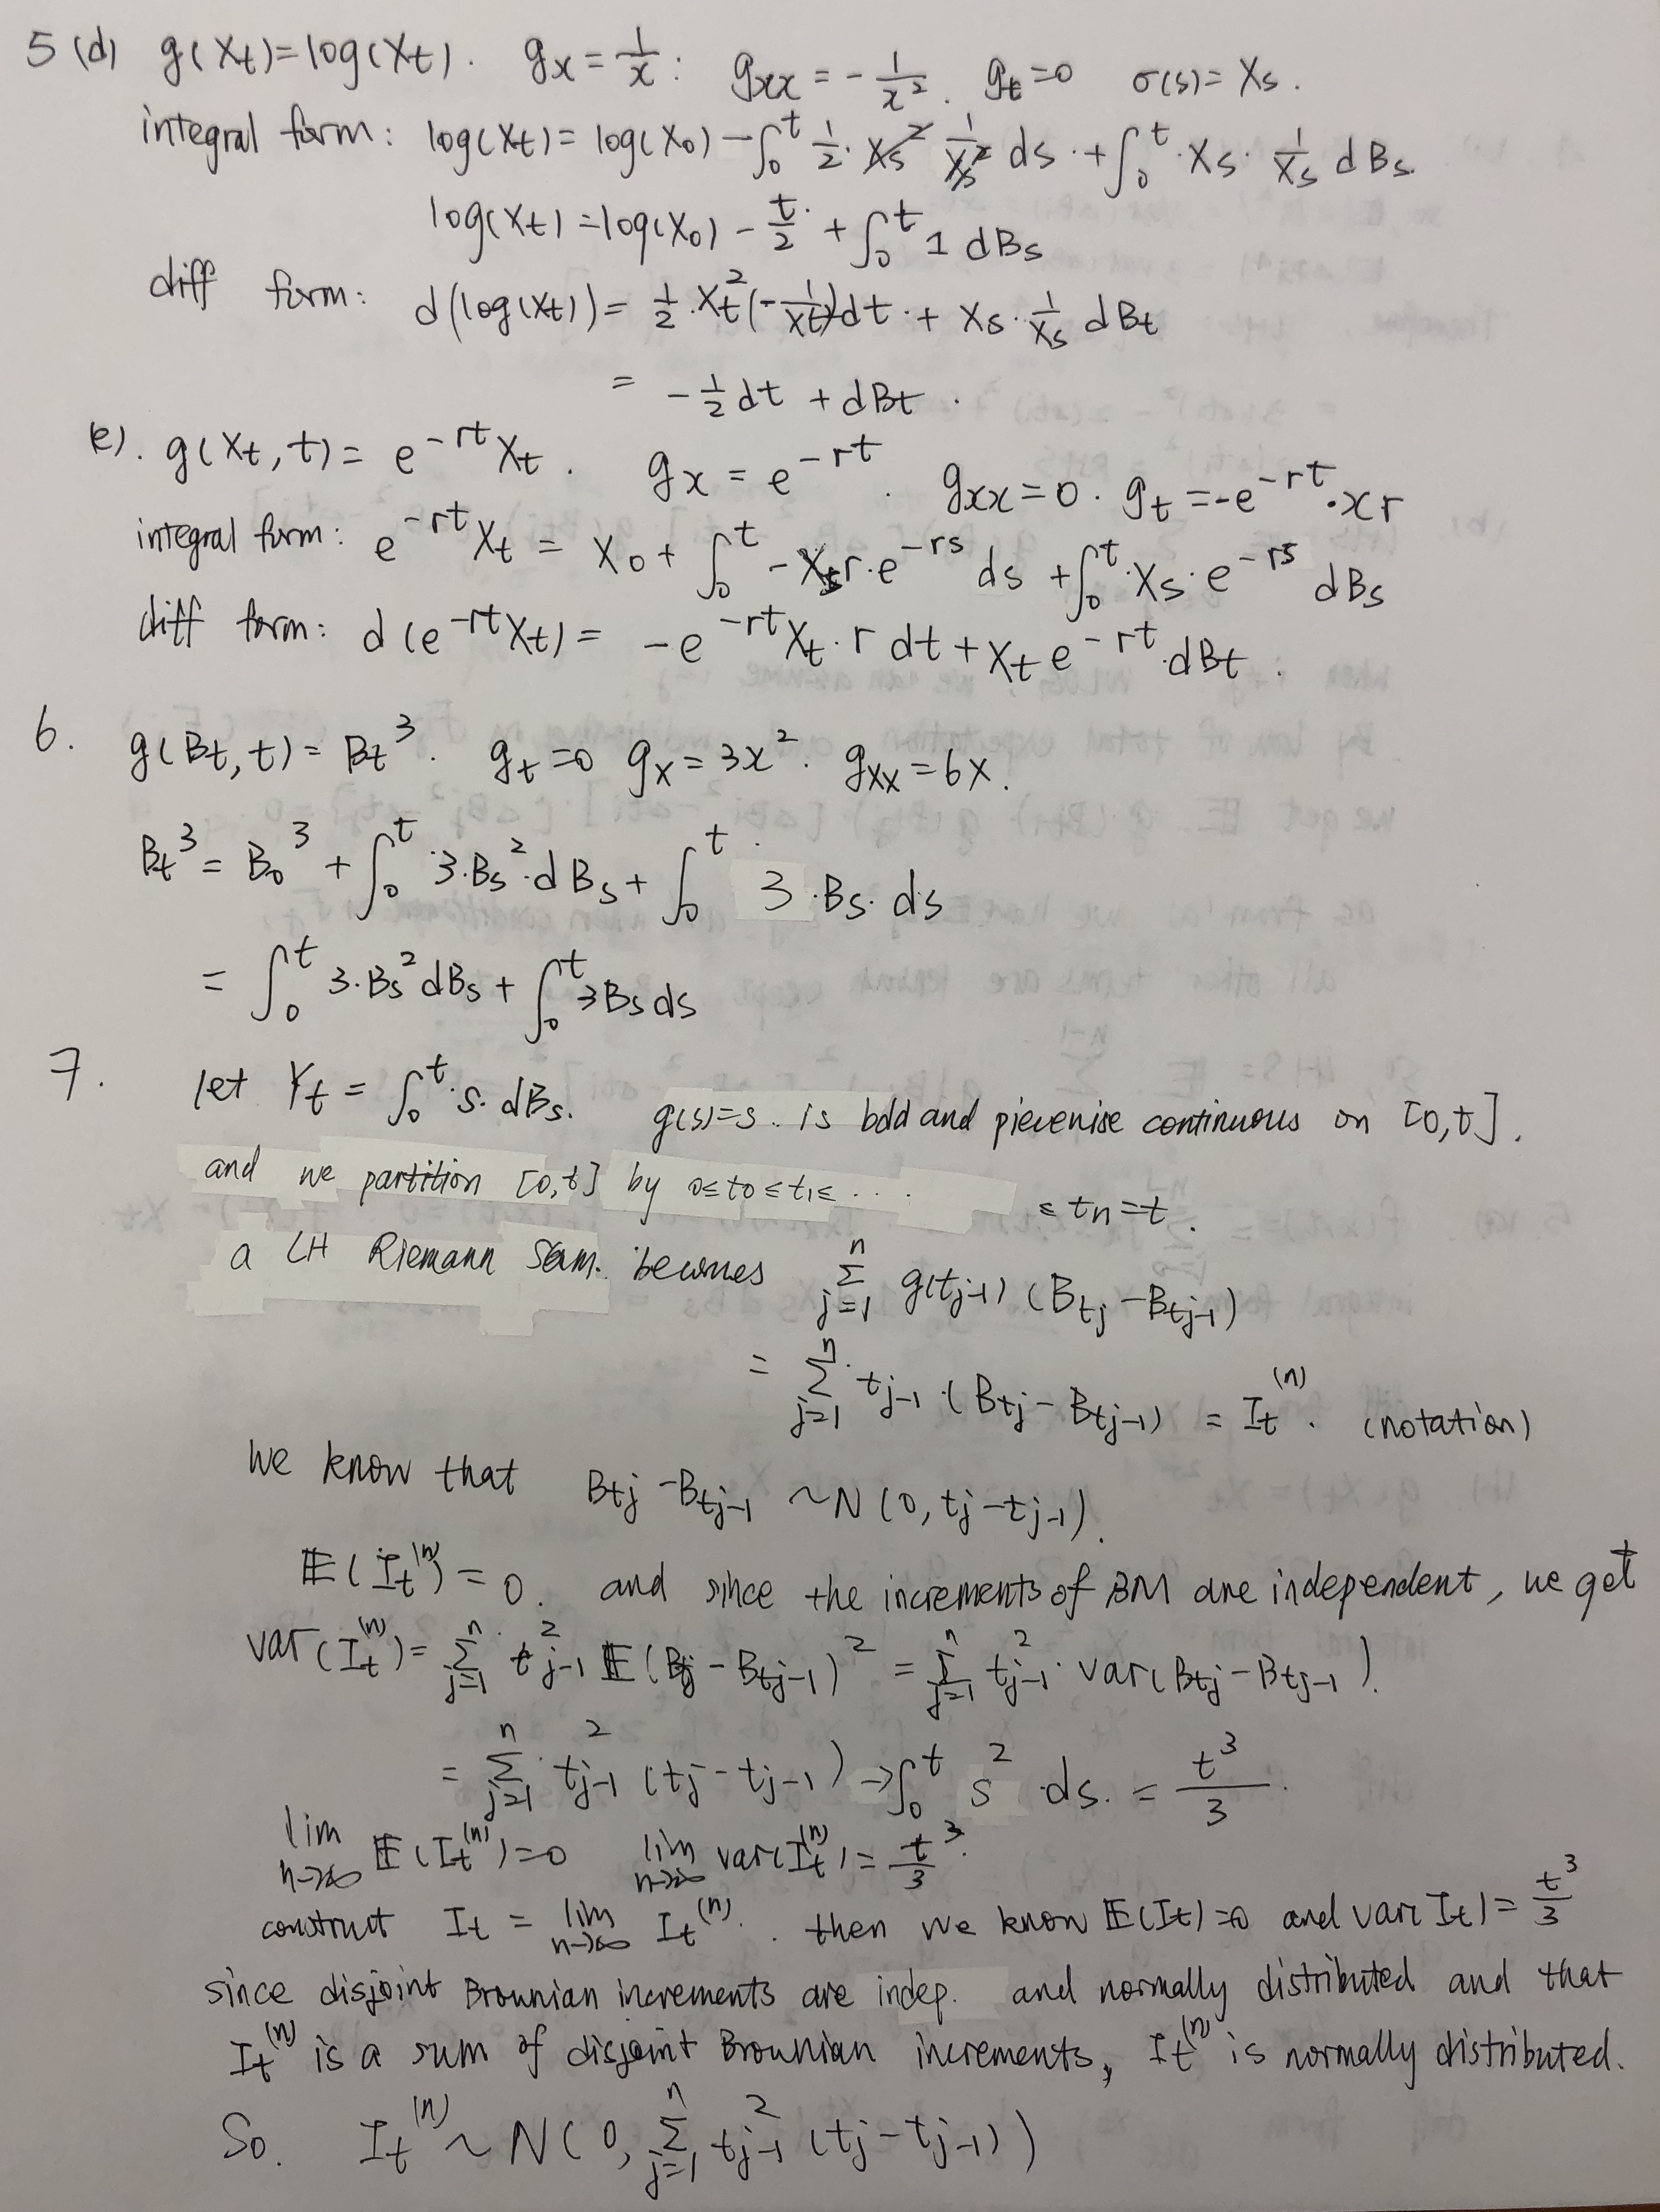 5 (d) g(Xt)=log(Xt). gx = 1/x : gxx = - 1/x². gt=0 σ(s)= Xs.
integral form: log(Xt)= log(X0) - ∫₀ᵗ 1/2 · Xs² 1/Xs² ds · + ∫₀ᵗ · Xs · 1/Xs dBs.
log(Xt) = log(X0) - t/2 + ∫₀ᵗ 1 dBs
diff form: d(log(Xt)) = 1/2 · Xt² (- 1/Xt²) dt · + Xs · 1/Xs dBt
= - 1/2 dt + dBt .
(e). g(Xt, t) = e^{-rt} Xt . gx = e^{-rt} . gxx = 0 . gt = -e^{-rt} · xr
integral form: e^{-rt} Xt = X0 + ∫₀ᵗ - Xs r · e^{-rs} ds + ∫₀ᵗ · Xs · e^{-rs} dBs
diff form: d(e^{-rt} Xt) = -e^{-rt} Xt · r dt + Xt e^{-rt} · dBt .
6. g(Bt, t) = Bt³ . gt = 0 gx = 3x² . gxx = 6x.
Bt³ = B0³ + ∫₀ᵗ · 3·Bs² · dBs + ∫₀ᵗ 3 · Bs · ds
= ∫₀ᵗ 3·Bs² dBs + ∫₀ᵗ 3Bs ds
7. let Yt = ∫₀ᵗ · s · dBs. g(s)=s .. is bdd and piecewise continuous on [0,t].
and we partition [0,t] by 0≤t0≤t1≤ ... ≤ tn=t .
a LH Riemann Sum. becomes Σ_{j=1}^{n} g(t_{j-1}) (B_{tj} - B_{tj-1})
= Σ_{j=1}^{n} · t_{j-1} · (B_{tj} - B_{tj-1}) = It^{(n)} . (notation)
We know that B_{tj} - B_{tj-1} ~ N (0, tj - t_{j-1}).
𝔼(It^{(n)}) = 0. and since the increments of BM are independent, we get
var(It^{(n)}) = Σ_{j=1}^{n} · t²_{j-1} 𝔼(Bj - B_{tj-1})² = Σ_{j=1}^{n} t²_{j-1} · var(B_{tj} - B_{tj-1}).
= Σ_{j=1}^{n} · t²_{j-1} (tj - t_{j-1}) → ∫₀ᵗ s² · ds. = t³/3 .
lim_{n→∞} 𝔼(It^{(n)}) = 0 lim_{n→∞} var(It^{(n)}) = t³/3 .
construct It = lim_{n→∞} It^{(n)} . then we know 𝔼(It)=0 and var(It) = t³/3
since disjoint Brownian increments are indep. and normally distributed and that
It^{(n)} is a sum of disjoint Brownian increments, It^{(n)} is normally distributed.
So. It^{(n)} ~ N(0, Σ_{j=1}^{n} t²_{j-1} (tj - t_{j-1}))